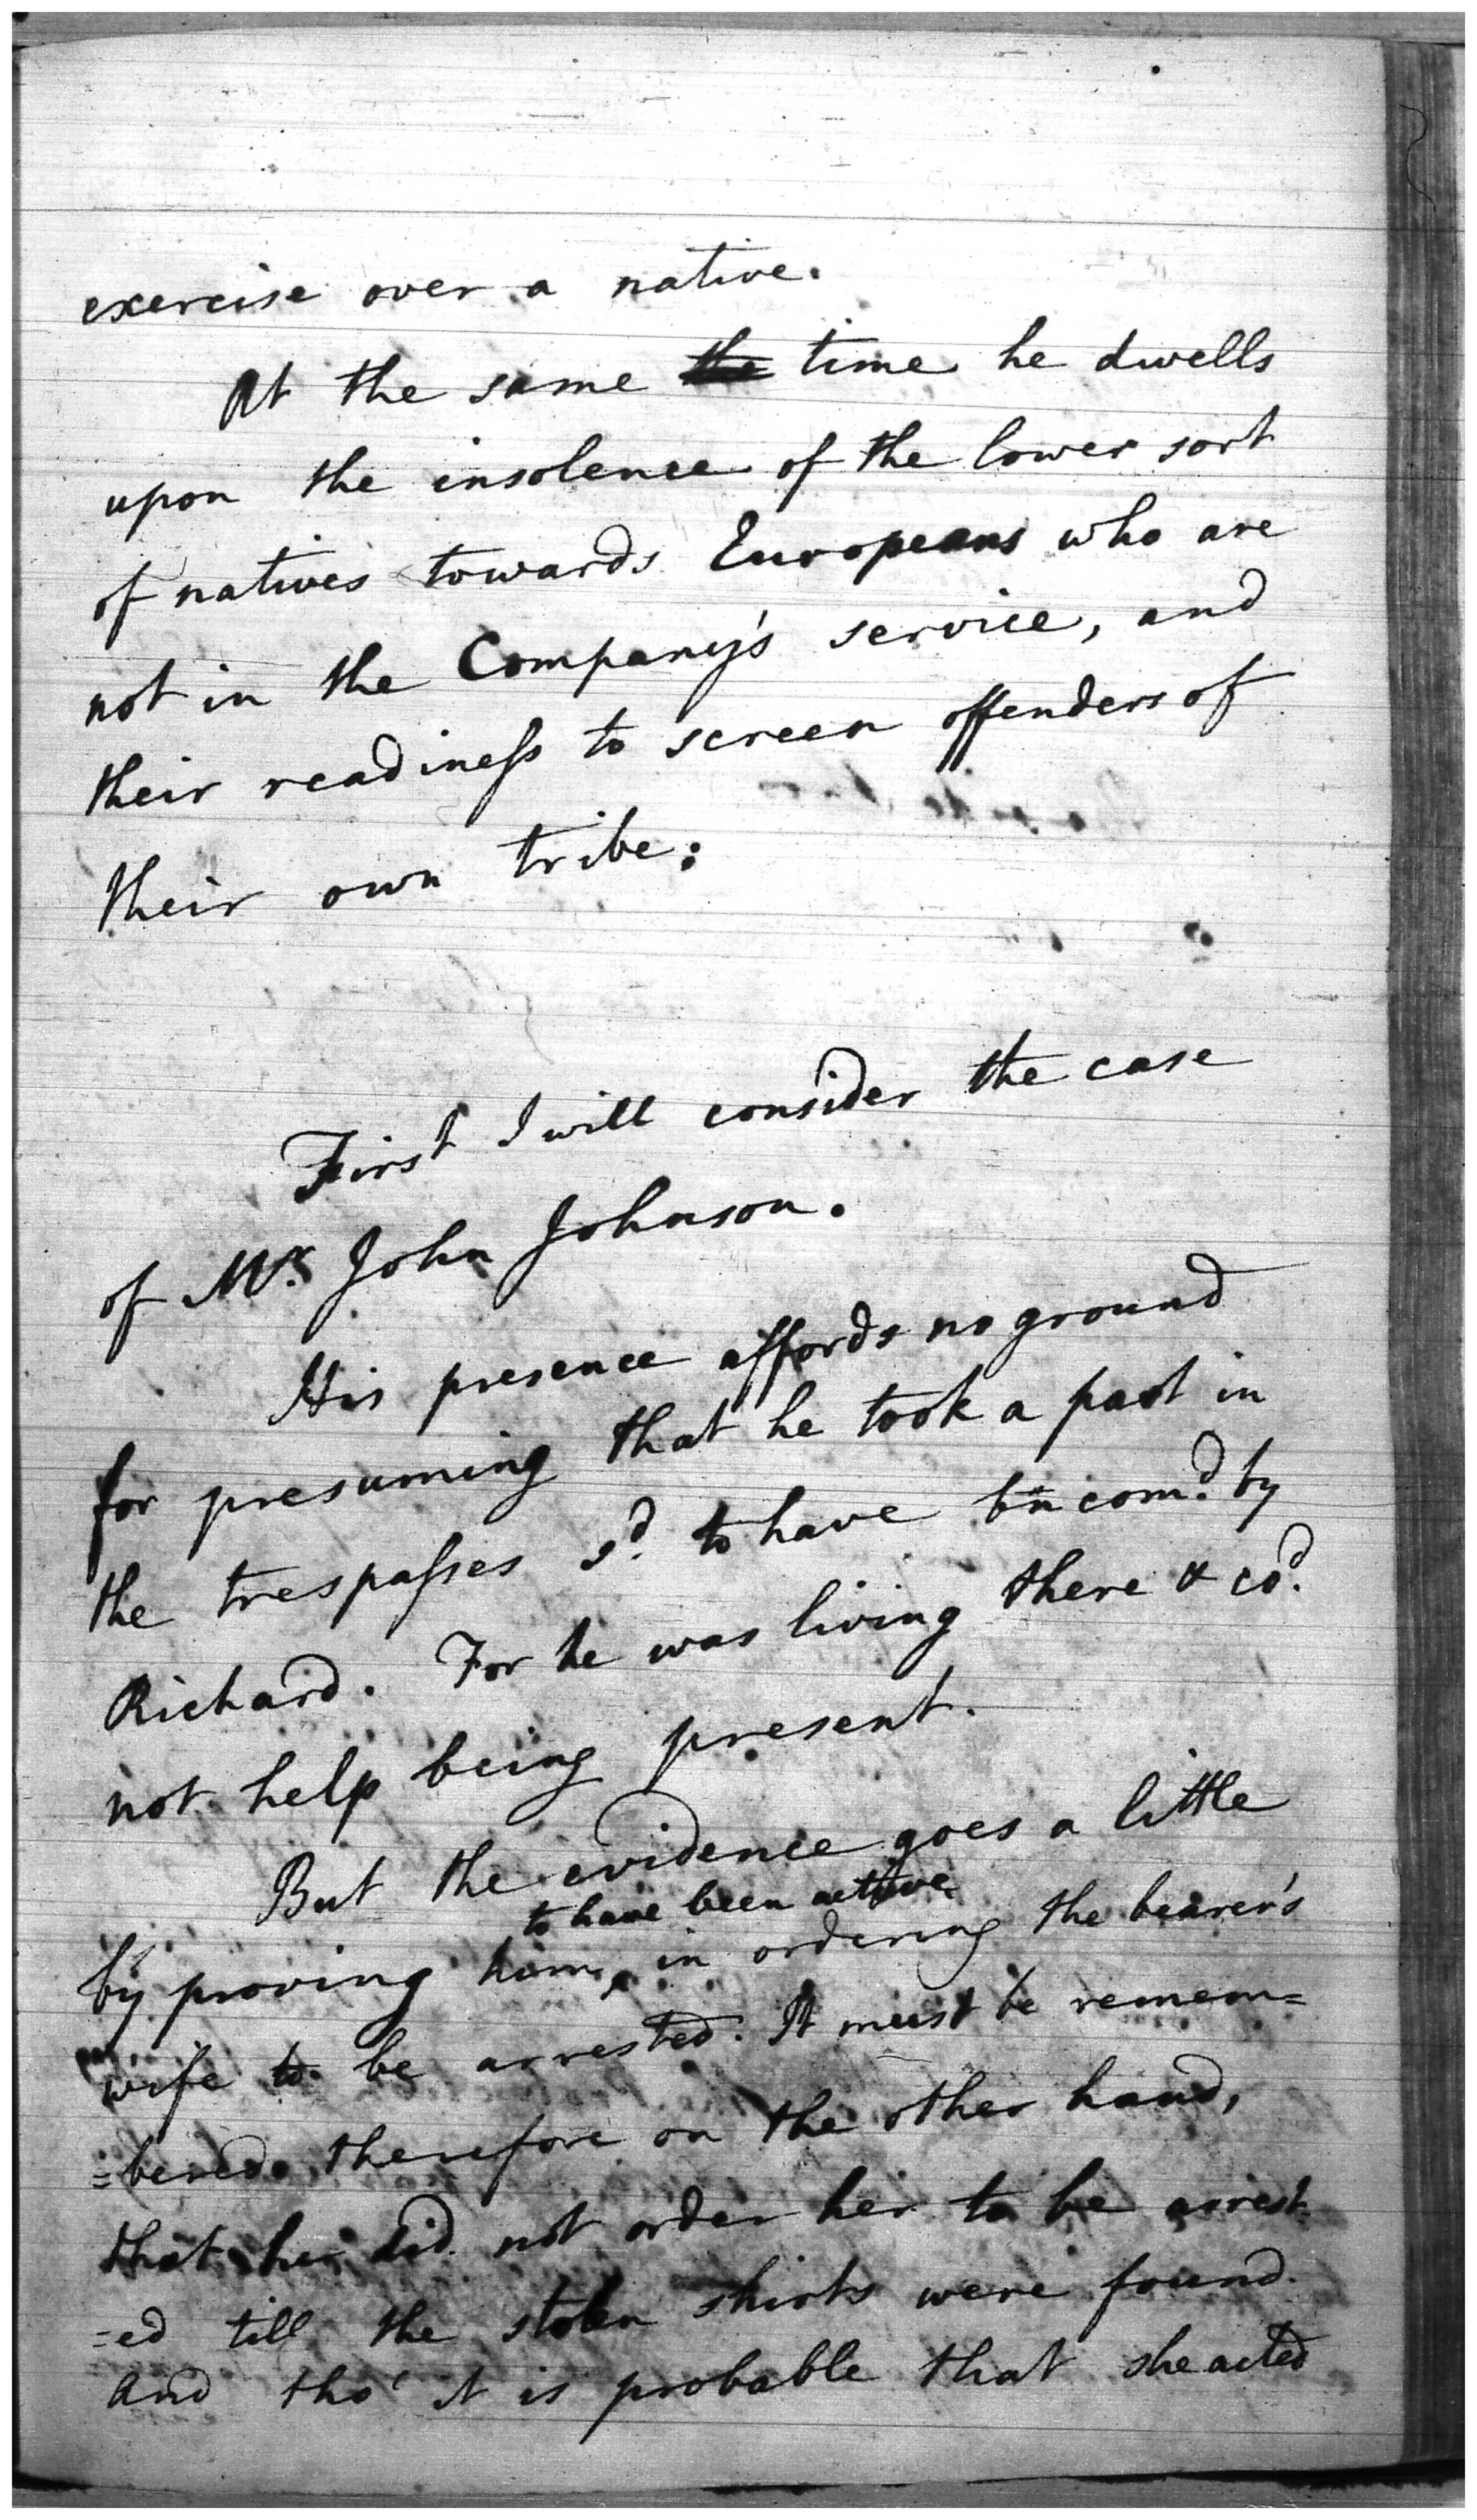 exercise over a native.
At the same the time he dwells
upon the insolence of the lower sort
of natives towards Europeans who are
not in the Company's service, and
their readiness to screen offenders of
their own tribe:
First I will consider the case
of Mr. John Johnson.
His presence affords no ground
for presuming that he took a part in
the trespasses sd. to have bn comd. by
Richard. For he was living there & cod.
not help being present.
But the evidence goes a little
to have been active
by proving him, in ordering the bearer's
wife to be arrested. It must be remem=
=bered therefore on the other hand,
that he did not order her to be arrest
=ed till the stolen shirts were found.
And tho' it is probable that she acted